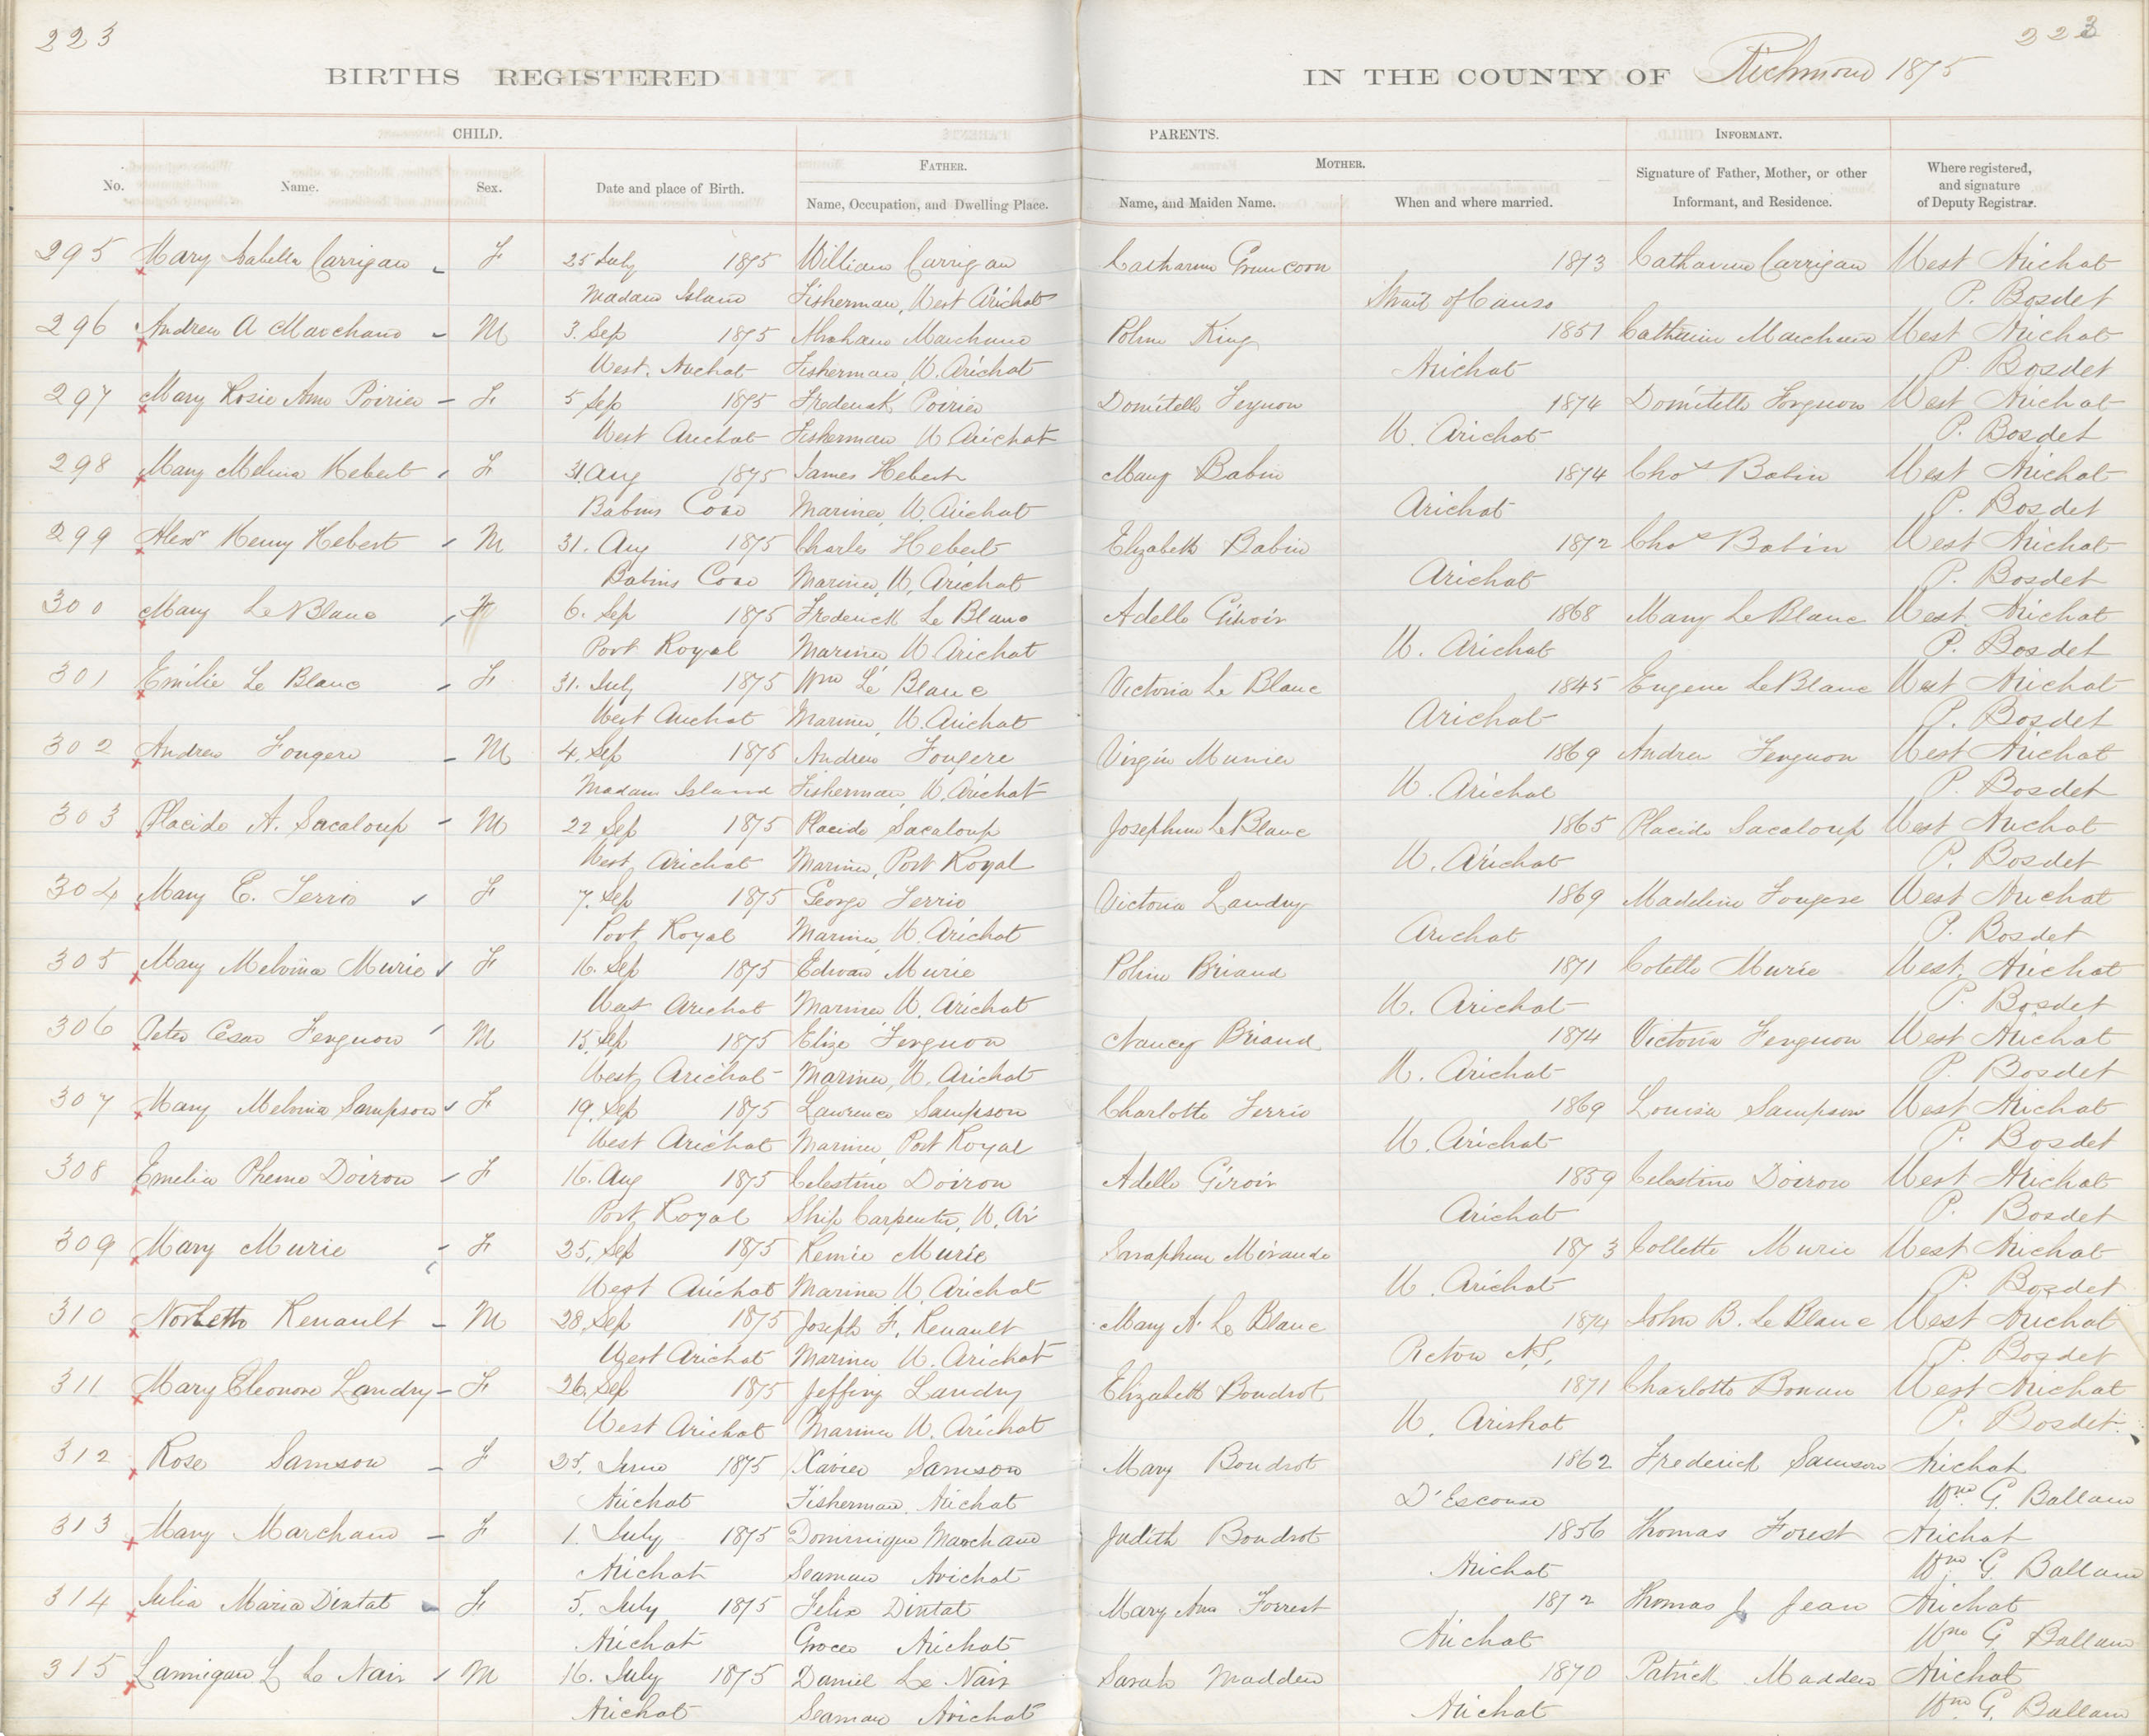 223
223
BIRTHS REGISTERED
IN THE COUNTY OF Richmond 1875
CHILD.
PARENTS.
INFORMANT.
No.
Name.
Sex.
Date and place of Birth.
FATHER.
Name, Occupation, and Dwelling Place.
MOTHER.
Name, and Maiden Name.
When and where married.
Signature of Father, Mother, or other
Informant, and Residence.
Where registered,
and signature
of Deputy Registrar.
295 Mary Isabella Carrigan F 25 July 1875 William Carrigan Catharine 1873 Catharine Carrigan West Arichat
Madam Island Fisherman, West Arichat Strait of Canso P. Bosdet
296 Andrew A Marchand M 3. Sep 1875 Abraham Marchand King 1851 Marchand West Arichat
West. Arichat Fisherman, W. Arichat Arichat P. Bosdet
297 Mary Rosie Ann Poirier F 5 Sep 1875 Frederick Poirier 1874 West Arichat
West Arichat Fisherman W Arichat W. Arichat P. Bosdet
298 Mary Melina Hebert F 31. Aug 1875 James Hebert Mary Babin 1874 Chos Babin West Arichat
Babins Cove Mariner, W. Arichat Arichat P. Bosdet
299 Alexr Henry Hebert M 31. Aug 1875 Charles Hebert Elizabeth Babin 1872 Chos Babin West Arichat
Babins Cove Mariner, W, Arichat Arichat P. Bosdet
300 Mary Le Blanc F 6. Sep 1875 Frederick Le Blanc Adelle Giroir 1868 Mary Le Blanc West Arichat
Port Royal Mariner W Arichat W. Arichat P. Bosdet
301 Emilie Le Blanc F 31. July 1875 Wm Le Blanc Victoria Le Blanc 1845 Eugene LeBlanc West Arichat
West Arichat Mariner, W. Arichat Arichat P. Bosdet
302 Andrew Fougere M 4. Sep 1875 Andrew Fougere Virgin 1869 Andrew West Arichat
Madam Island Fisherman, W. Arichat W. Arichat P. Bosdet
303 Placide A. Sacaloup M 22 Sep 1875 Placide Sacaloup Josephine LeBlanc 1865 Placide Sacaloup West Arichat
West Arichat Mariner, Port Royal W. Arichat P. Bosdet
304 Mary E. Terrio F 7. Sep 1875 George Terrio Victoria Landry 1869 Madeline Fougere West Arichat
Port Royal Mariner, W. Arichat Arichat P. Bosdet
305 Mary Melvina Murie F 16. Sep 1875 Murie Briand 1871 Murie West, Arichat
West Arichat Mariner W. Arichat W. Arichat P. Bosdet
306 Peter Cesar M 15. Sep 1875 Nancy Briand 1874 Victoria West Arichat
West Arichat Mariner, W. Arichat W. Arichat P. Bosdet
307 Mary Melvina Sampson F 19. Sep 1875 Lawrence Sampson Charlotte Terrio 1869 Louisa Sampson West Arichat
West Arichat Mariner, Port Royal W. Arichat P. Bosdet
308 Emelia Pheme Doiron F 16. Aug 1875 Celestine Doiron Adelle Giroir 1859 Celestine Doiron West Arichat
Port Royal Ship Carpenter, W, Ar Arichat P. Bosdet
309 Mary Murie F 25. Sep 1875 Remie Murie Saraphine Mirande 1873 Collette Murie West Arichat
West Arichat Mariner W Arichat W. Arichat P. Bosdet
310 Renault M 28 Sep 1875 Joseph F. Renault Mary A. Le Blanc 1874 John B. Le Blanc West Arichat
West Arichat Mariner W. Arichat Pictou N.S. P. Bosdet
311 Mary Eleonore Landry F 26. Sep 1875 Landry Elizabeth Boudrot 1871 Charlotte West Arichat
West Arichat Mariner W. Arichat W. Arishat P. Bosdet
312 Rose Samson F 25. June 1875 Xavier Samson Mary Boudrot 1862 Frederick Samson Arichat
Arichat Fisherman, Arichat D'Escouse Wm. G. Ballam
313 Mary Marchand F 1. July 1875 Dominique Marchand Judith Boudrot 1856 Thomas Forest Arichat
Arichat Seaman Arichat Arichat Wm. G. Ballam
314 Julia Maria Dintat F 5. July 1875 Felix Dintat Mary Ann Forrest 1872 Thomas J Jean Arichat
Arichat Grocer Arichat Arichat Wm G. Ballam
315 Lannigan L Le Nair M 16. July 1875 Daniel Le Nair Sarah Madden 1870 Patrick Madden Arichat
Arichat Seaman Arichat Arichat Wm. G. Ballam